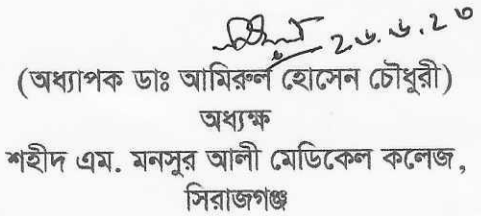 ২৬.৬.২৩
(অধ্যাপক ডাঃ আমিরুল হোসেন চৌধুরী)
অধ্যক্ষ
শহীদ এম. মনসুর আলী মেডিকেল কলেজ,
সিরাজগঞ্জ